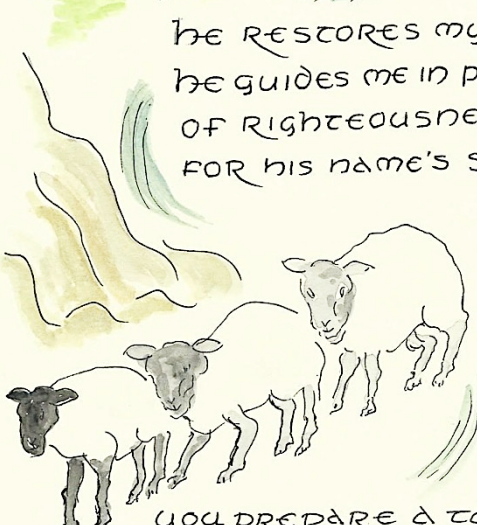 he restores my
he guides me in p
of righteousne
for his name's s
you prepare a to